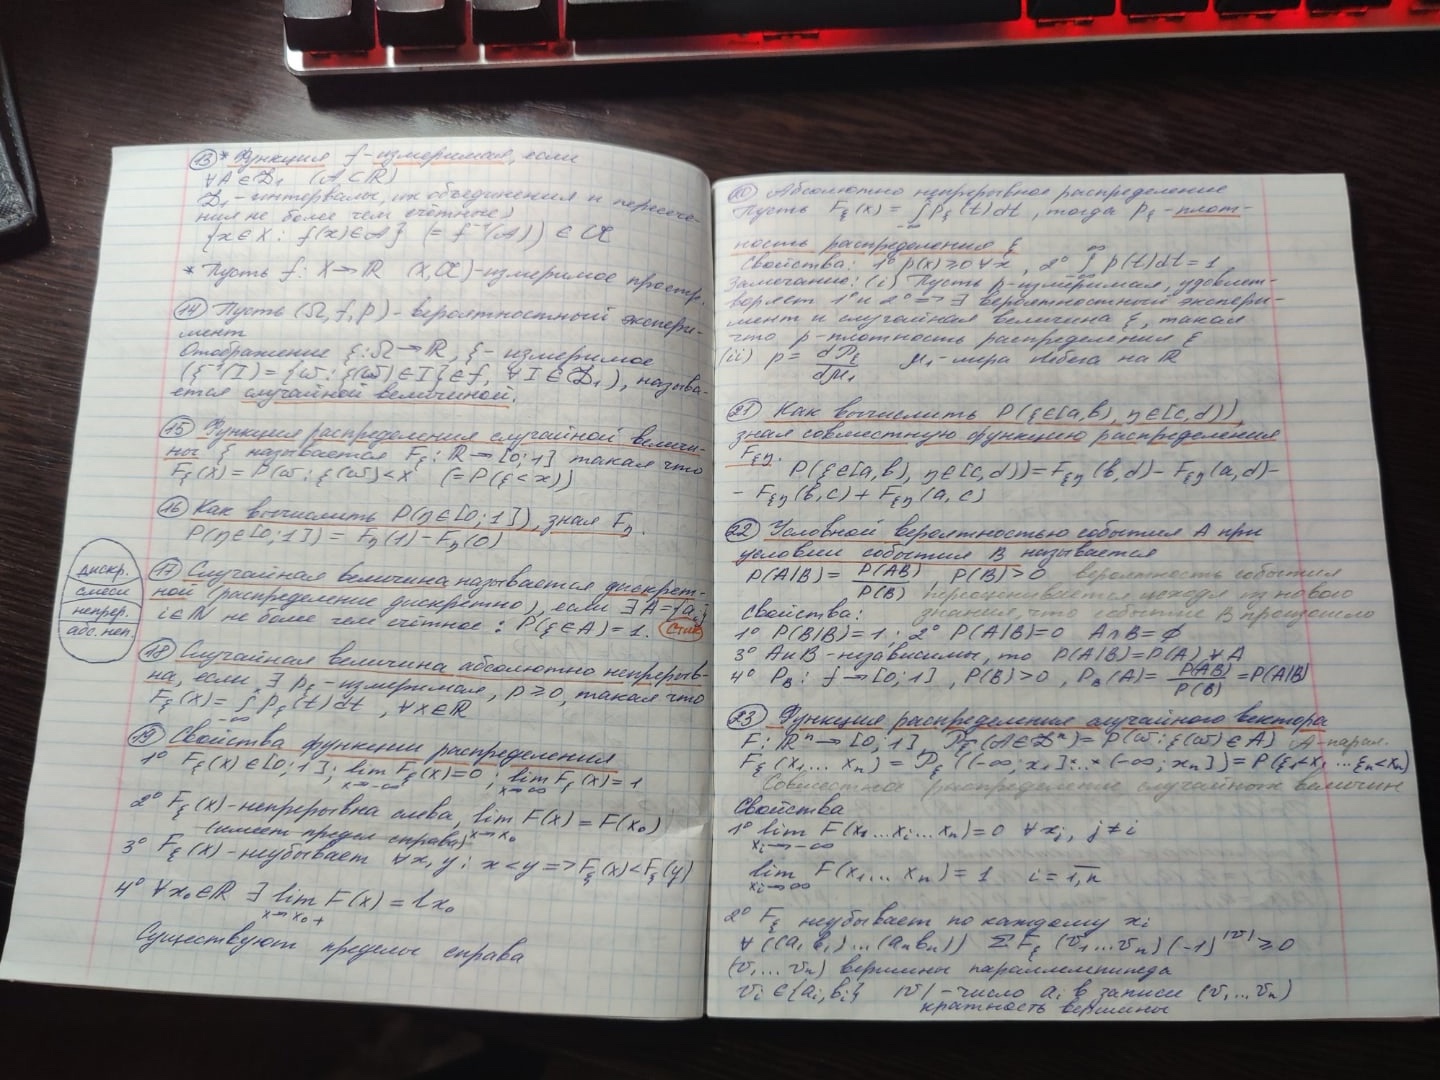 ⑬ * Функция f-измеримая, если
∀A ∈ 𝒟₁ (A ⊂ ℝ)
𝒟₁ - интервалы, их объединения и пересече-
ния не более чем счётные)
{x ∈ X : f(x) ∈ A} (= f⁻¹(A)) ∈ 𝒰
* Пусть f: X → ℝ (X, 𝒰)-измеримое простр.
⑭ Пусть (Ω, f, p) - вероятностный экспери-
мент
Отображение ξ: Ω → ℝ, ξ - измеримое
(ξ⁻¹(I) = {ω: ξ(ω) ∈ I} ∈ f, ∀I ∈ 𝒟₁), называ-
ется случайной величиной.
⑮ Функция распределения случайной величи-
ны ξ называется F_ξ: ℝ → [0;1] такая что
F_ξ(x) = P(ω: ξ(ω) < x (= P(ξ < x))
⑯ Как вычислить P(η ∈ [0;1]), зная F_η.
P(η ∈ [0;1]) = F_η(1) - F_η(0)
дискр.
смеси
непрер.
абс. неп.
⑰ Случайная величина называется дискрет-
ной (распределение дискретно), если ∃ A = {aᵢ}
i ∈ ℕ не более чем счётное : P(ξ ∈ A) = 1.
⑱ Случайная величина абсолютно непрерыв-
на, если ∃ p_ξ - измеримая, p ≥ 0, такая что
F_ξ(x) = ∫_{-∞}^{x} p_ξ(t) dt, ∀x ∈ ℝ
⑲ Свойства функции распределения
1° F_ξ(x) ∈ [0;1]; lim_{x→-∞} F_ξ(x) = 0; lim_{x→∞} F_ξ(x) = 1
2° F_ξ(x) - непрерывна слева, lim_{x→x₀} F(x) = F(x₀)
(имеет предел справа)
3° F_ξ(x) - неубывает ∀x, y: x < y => F_ξ(x) < F_ξ(y)
4° ∀x₀ ∈ ℝ ∃ lim_{x→x₀+} F(x) = lx₀
Существуют пределы справа
⑳ Абсолютно непрерывное распределение
Пусть F_ξ(x) = ∫_{-∞}^{x} p_ξ(t) dt, тогда p_ξ - плот-
ность распределения ξ
Свойства: 1° p(x) ≥ 0 ∀x, 2° ∫_{-∞}^{∞} p(t) dt = 1
Замечание: (i) Пусть p - измеримая, удовлет-
воряет 1° и 2° => ∃ вероятностный экспери-
мент и случайная величина ξ, такая
что p - плотность распределения ξ
(ii) p = d𝒫_ξ/dμ₁ μ₁ - мера Лебега на ℝ
㉑ Как вычислить P(ξ ∈ [a,b), η ∈ [c,d)),
зная совместную функцию распределения
F_ξη.
P(ξ ∈ [a,b), η ∈ [c,d)) = F_ξη(b,d) - F_ξη(a,d) -
- F_ξη(b,c) + F_ξη(a,c)
㉒ Условной вероятностью события A при
условии события B называется
P(A|B) = P(AB)/P(B), P(B) > 0 вероятность события
переоценивается исходя из нового
Свойства: знания, что событие B произошло
1° P(B|B) = 1; 2° P(A|B) = 0 A∩B = ∅
3° A и B - независимы, то P(A|B) = P(A) ∀A
4° P_B: f → [0;1], P(B) > 0, P_B(A) = P(AB)/P(B) = P(A|B)
㉓ Функция распределения случайного вектора
F: ℝⁿ → [0;1] 𝒫_ξ(A ∈ 𝒟ⁿ) = P(ω: ξ(ω) ∈ A) A-парал.
F_ξ(x₁...xₙ) = 𝒫_ξ((-∞; x₁]×...×(-∞; xₙ]) = P(ξ₁<x₁...ξₙ<xₙ)
Совместное распределение случайных величин
Свойства
1° lim_{xᵢ→-∞} F(x₁...xᵢ...xₙ) = 0 ∀xⱼ, j ≠ i
lim_{xᵢ→∞} F(x₁...xₙ) = 1 i = 1,n
2° F_ξ неубывает по каждому xᵢ
∀((a₁b₁)...(aₙbₙ)) ΣF_ξ(v₁...vₙ)(-1)^{|v|} ≥ 0
(v₁...vₙ) вершины параллелепипеда
vᵢ ∈ {aᵢ, bᵢ} |v| - число aᵢ в записи (v₁...vₙ)
кратность вершины